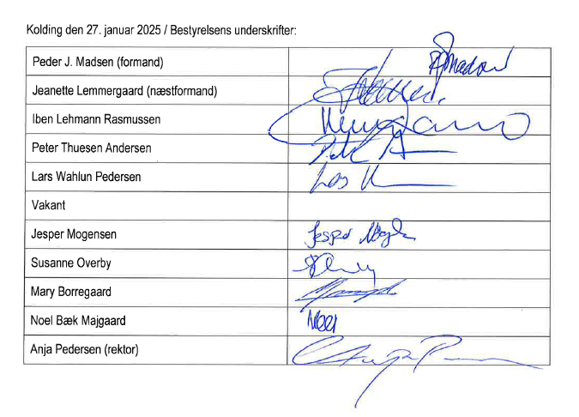 Kolding den 27. januar 2025 / Bestyrelsens underskrifter:
Peder J. Madsen (formand)
Jeanette Lemmergaard (næstformand)
Iben Lehmann Rasmussen
Peter Thuesen Andersen
Lars Wahlun Pedersen
Vakant
Jesper Mogensen Jesper
Susanne Overby
Mary Borregaard
Noel Bæk Majgaard Noel
Anja Pedersen (rektor)